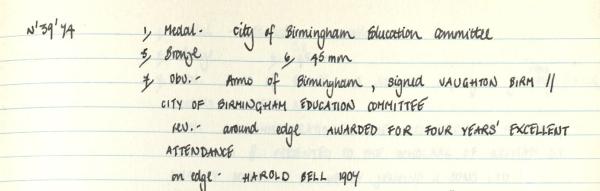 N'39'74 1, Medal. City of Birmingham Education Committee
5, Bronze 6, 45 mm
7, obv.- Arms of Birmingham, signed VAUGHTON BIRM //
CITY OF BIRMINGHAM EDUCATION COMMITTEE
rev.- around edge AWARDED FOR FOUR YEARS' EXCELLENT
ATTENDANCE
on edge- HAROLD BELL 1907